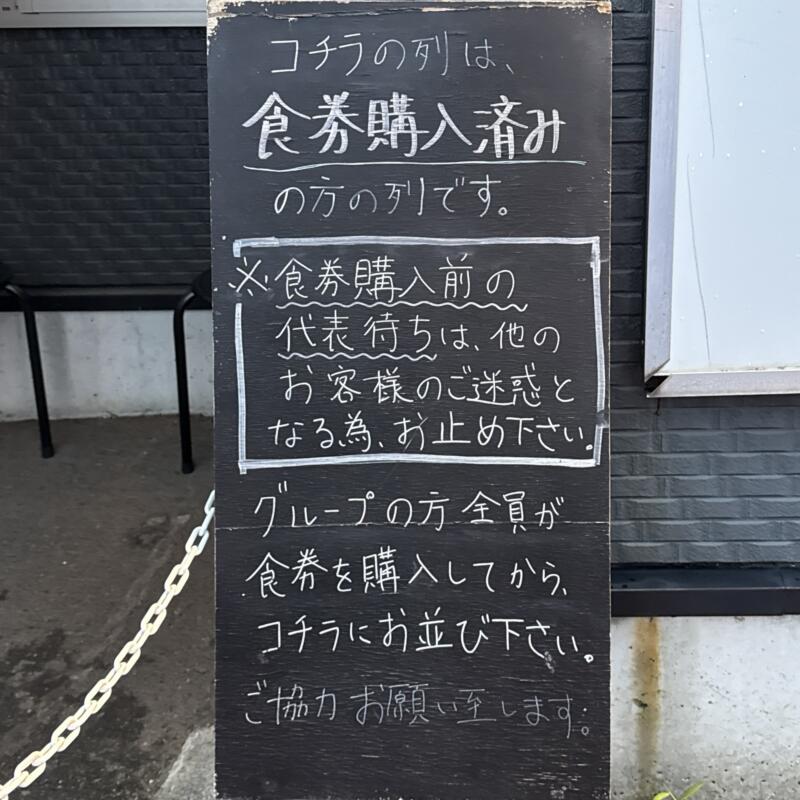 コチラの列は、
食券購入済み
の方の列です。
※食券購入前の
代表待ちは、他の
お客様のご迷惑と
なる為、お止め下さい。
グループの方全員が
食券を購入してから、
コチラにお並び下さい。
ご協力お願い至します。